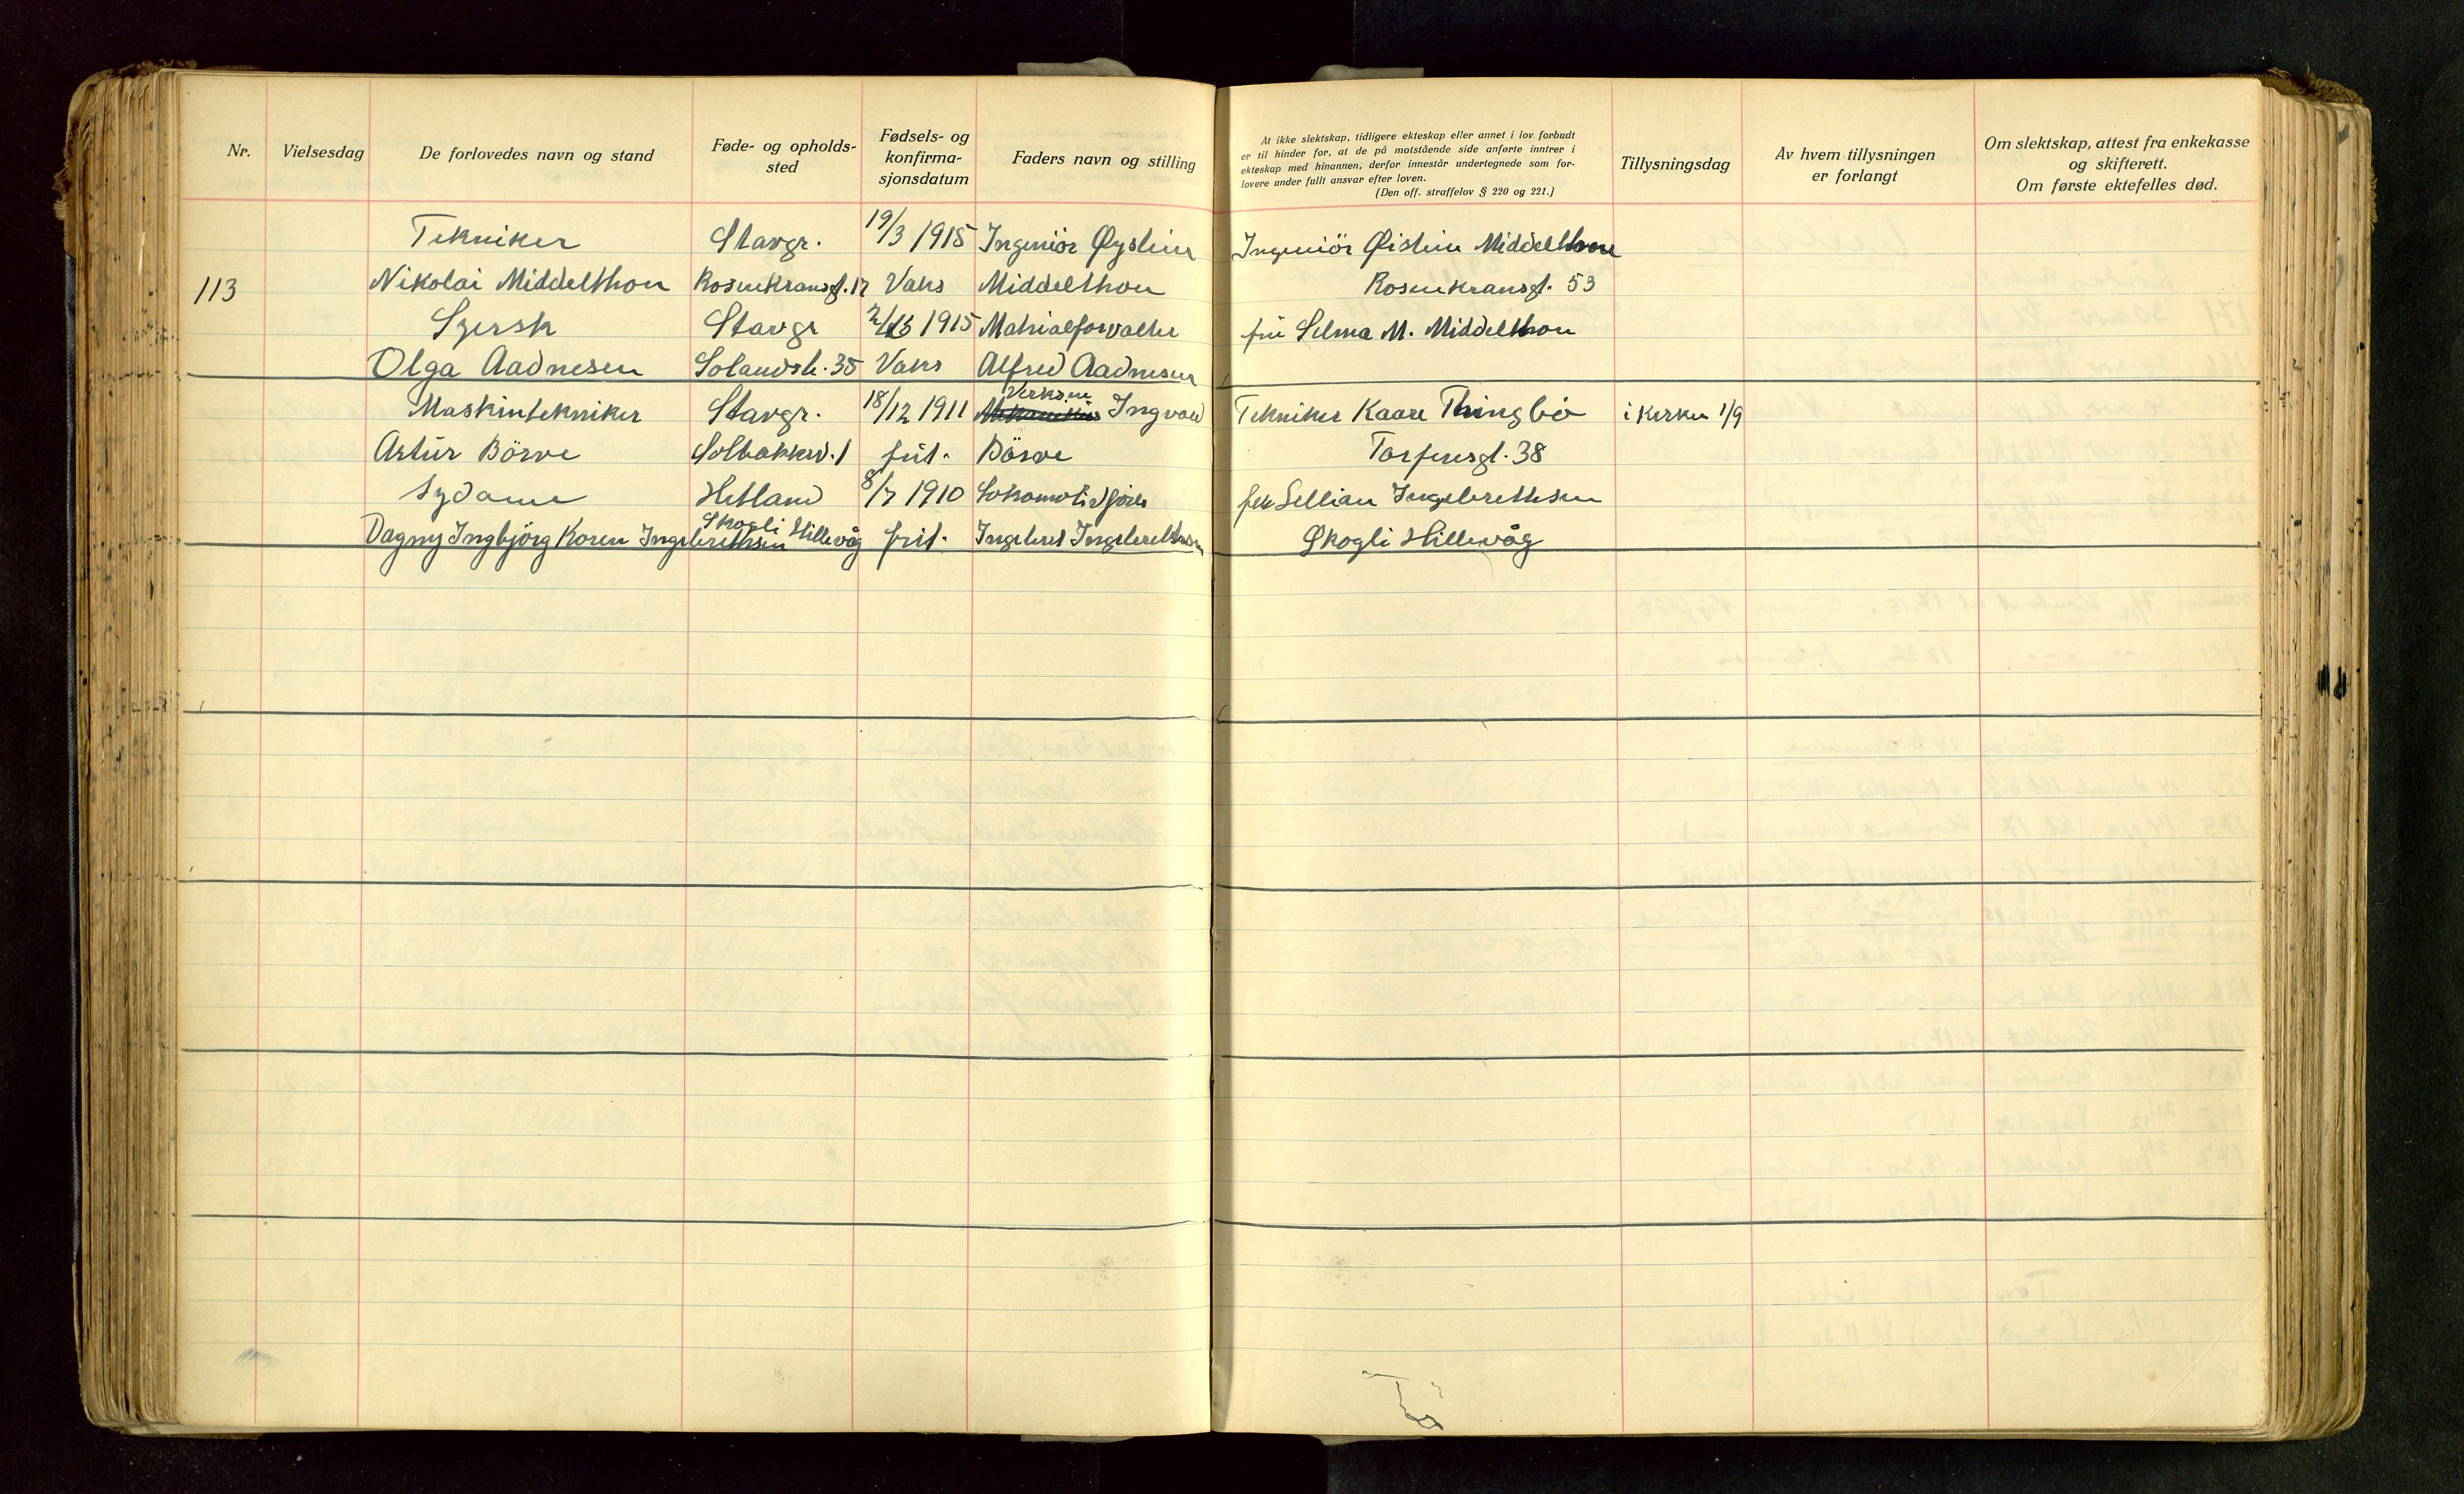 Nr.
Vielsesdag
De forlovedes navn og stand
Føde- og opholds-
sted
Fødsels- og
konfirma-
sjonsdatum
Faders navn og stilling
At ikke slektskap, tidligere ekteskap eller annet i lov forbudt
er til hinder for, at de på motstående side anførte inntrer i
ekteskap med hinannen, derfor innestår undertegnede som for-
lovere under fullt ansvar efter loven.
(Den off. straffelov § 220 og 221.)
Tillysningsdag
Av hvem tillysningen
er forlangt
Om slektskap, attest fra enkekasse
og skifterett.
Om første ektefelles død.
Tekniker Stavgr. 19/3 1915 Ingeniör Øystein Ingeniör Øistein Middelthon
113 Nikolai Middelthon Rosenkransgt. 17 Vaks Middelthon Rosenkransgt. 53
Sjersk Stavgr 1915 Matrialforvalter frú Selma M. Middelthon
Olga Aadnesen Solandsb. 35 Vaks Alfred Aadnesen
Maskintekniker Stavgr. 18/12 1911 Verksm Ingvald Tekniker Kaare Thingbö i kirken 1/9
Artúr Börve Solbakkev. 1 frit. Börve Torfinsgt. 38
Sydame Hetland 8/7 1910 Lokomotivförer Lellian Ingebrethsen
Dagny Ingbjörg Koren Ingebrethsen Skogli Hillevåg frit. Ingebret Ingebrethsen Skogli Hillevåg